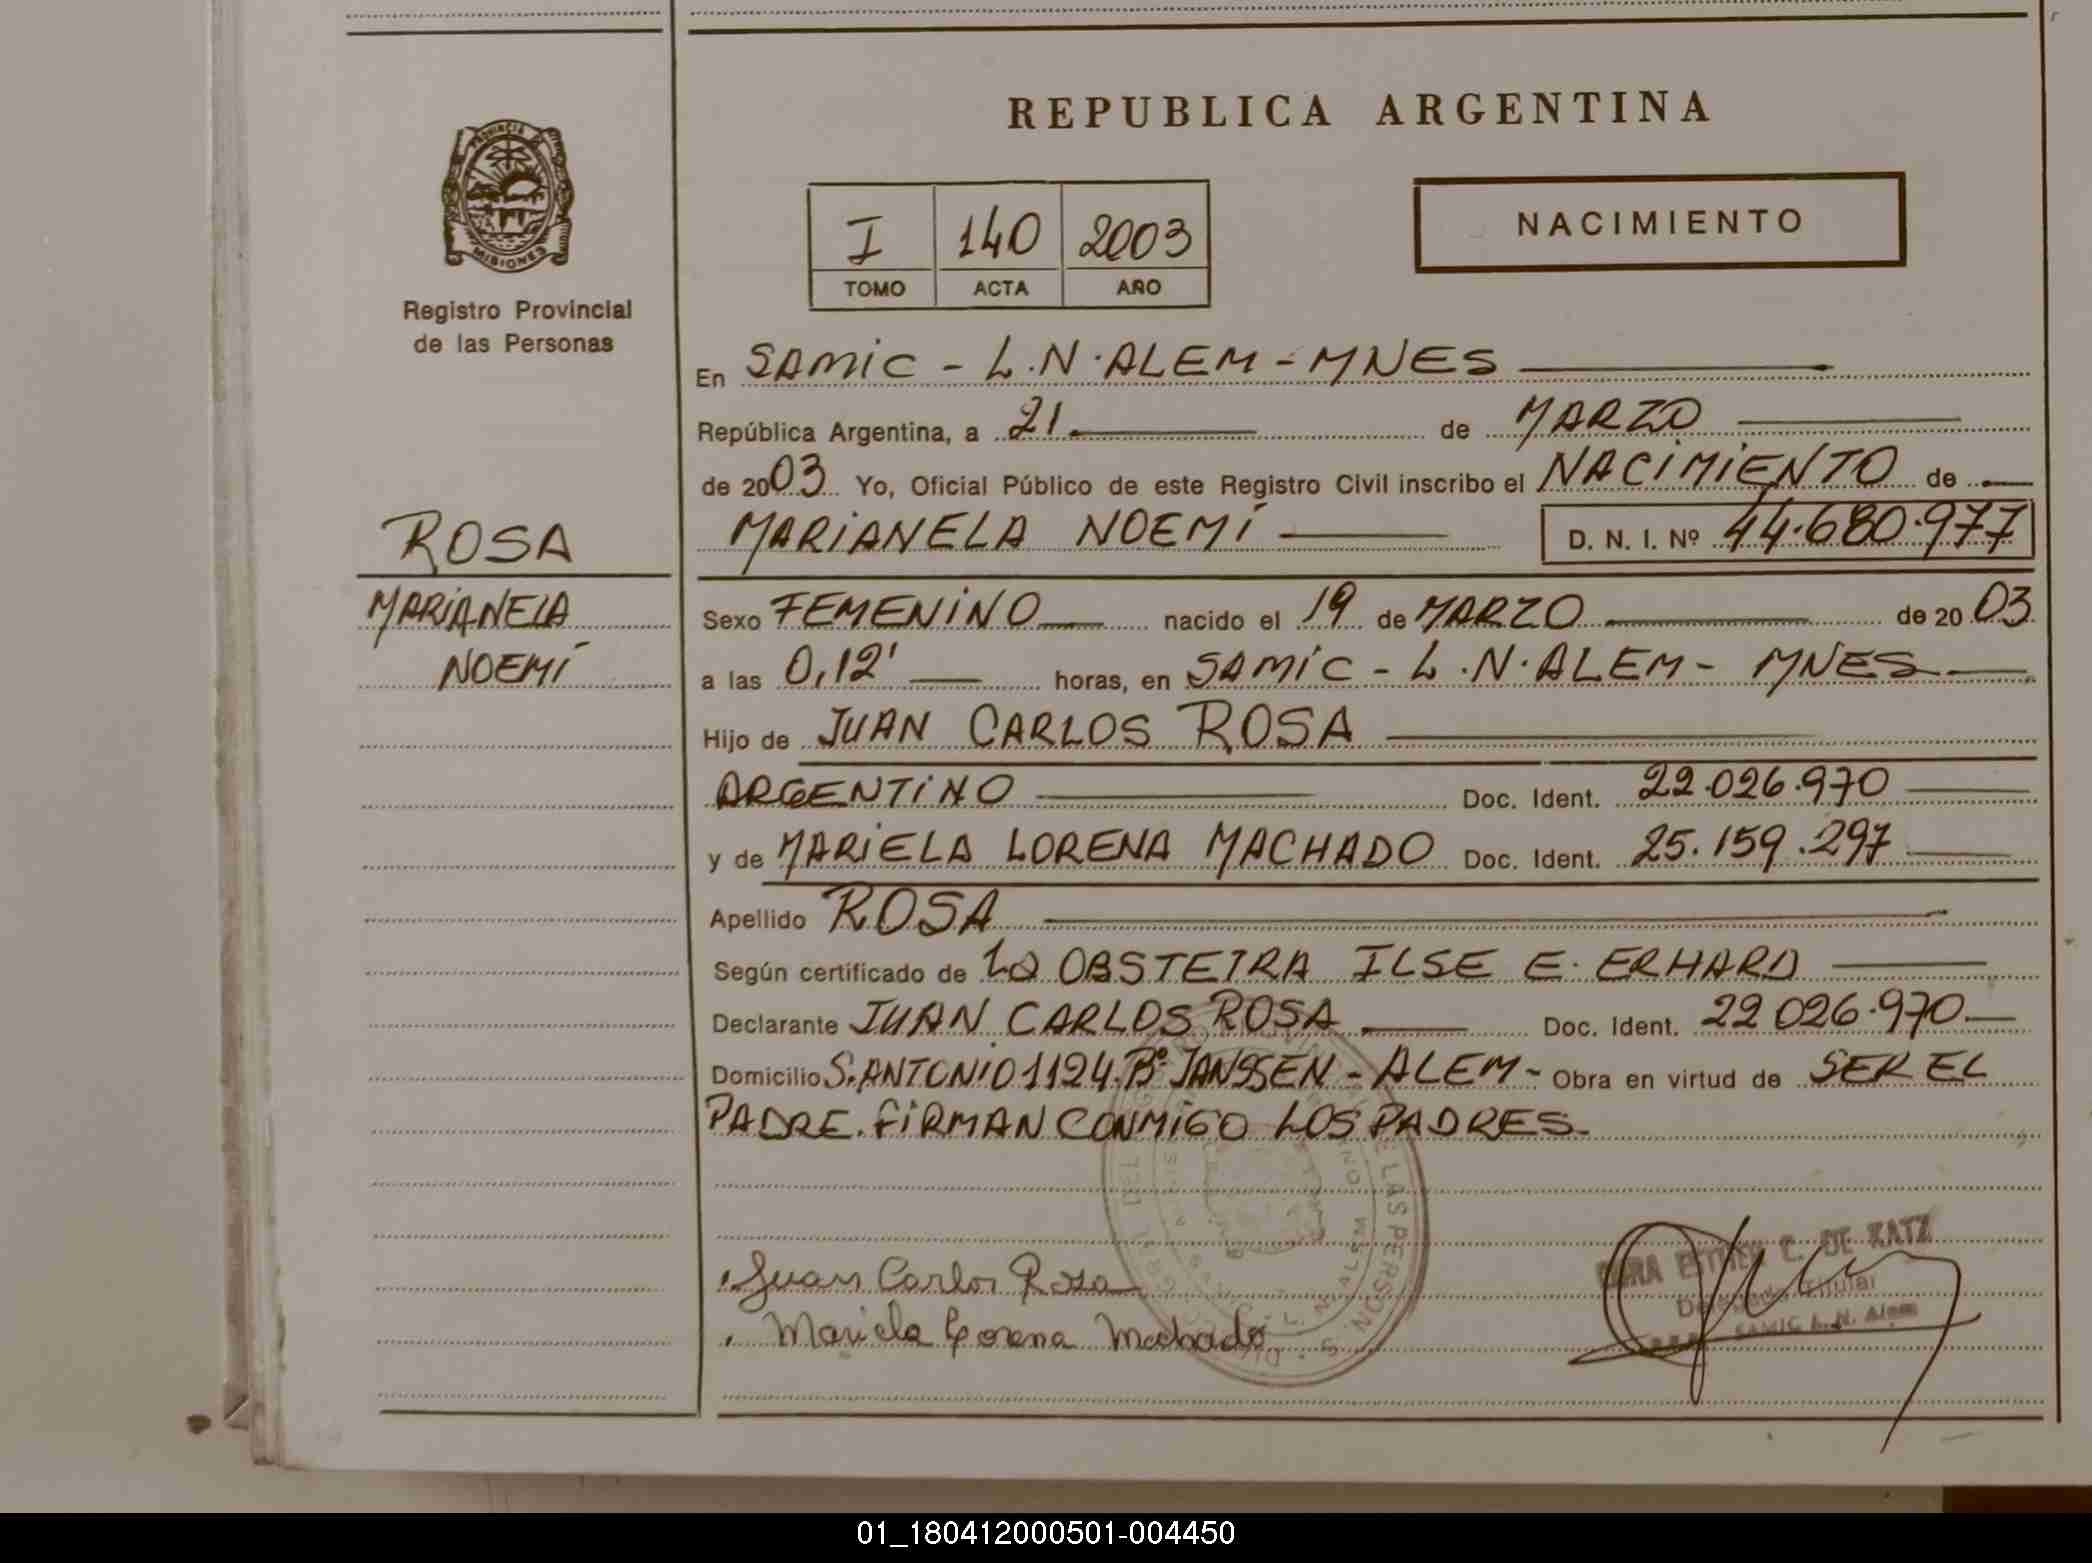 REPUBLICA ARGENTINA
PROVINCIA DE
MISIONES
Registro Provincial
de las Personas
I 140 2003
TOMO ACTA AÑO
NACIMIENTO
En SAMIC - L.N. ALEM - MNES
República Argentina, a 21 de MARZO
de 2003 Yo, Oficial Público de este Registro Civil inscribo el NACIMIENTO de
ROSA
MARIANELA NOEMÍ D. N. I. Nº 44.680.977
MARIANELA
NOEMÍ
Sexo FEMENINO nacido el 19 de MARZO de 2003
a las 0,12' horas, en SAMIC - L.N. ALEM - MNES
Hijo de JUAN CARLOS ROSA
ARGENTINO Doc. Ident. 22.026.970
y de MARIELA LORENA MACHADO Doc. Ident. 25.159.297
Apellido ROSA
Según certificado de La OBSTETRA ILSE E. ERHARD
Declarante JUAN CARLOS ROSA Doc. Ident. 22 026.970
Domicilio S. ANTONIO 1124. Bº JANSSEN - ALEM - Obra en virtud de SER EL
PADRE. FIRMAN CONMIGO LOS PADRES.
Juan Carlos Rosa
Mariela Lorena Machado
ESTHER C. DE KATZ
Delegada Titular
SAMIC L. N. Alem
DE LAS PERSONAS
L. N. ALEM
01_180412000501-004450